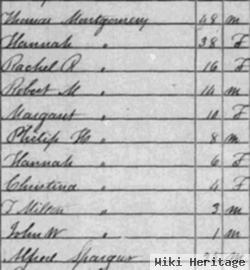 Thomas Montgomery 48 m
Hannah " 38 F
Rachel R " 16 F
Robert M " 14 m
Margaret " 10 F
Philip H " 8 m
Hannah " 6 F
Christina " 4 F
J Milton " 3 m
John W " 1 m
Alfred Spargur
Wiki Heritage